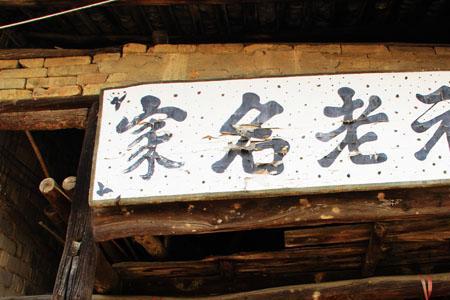 老名家